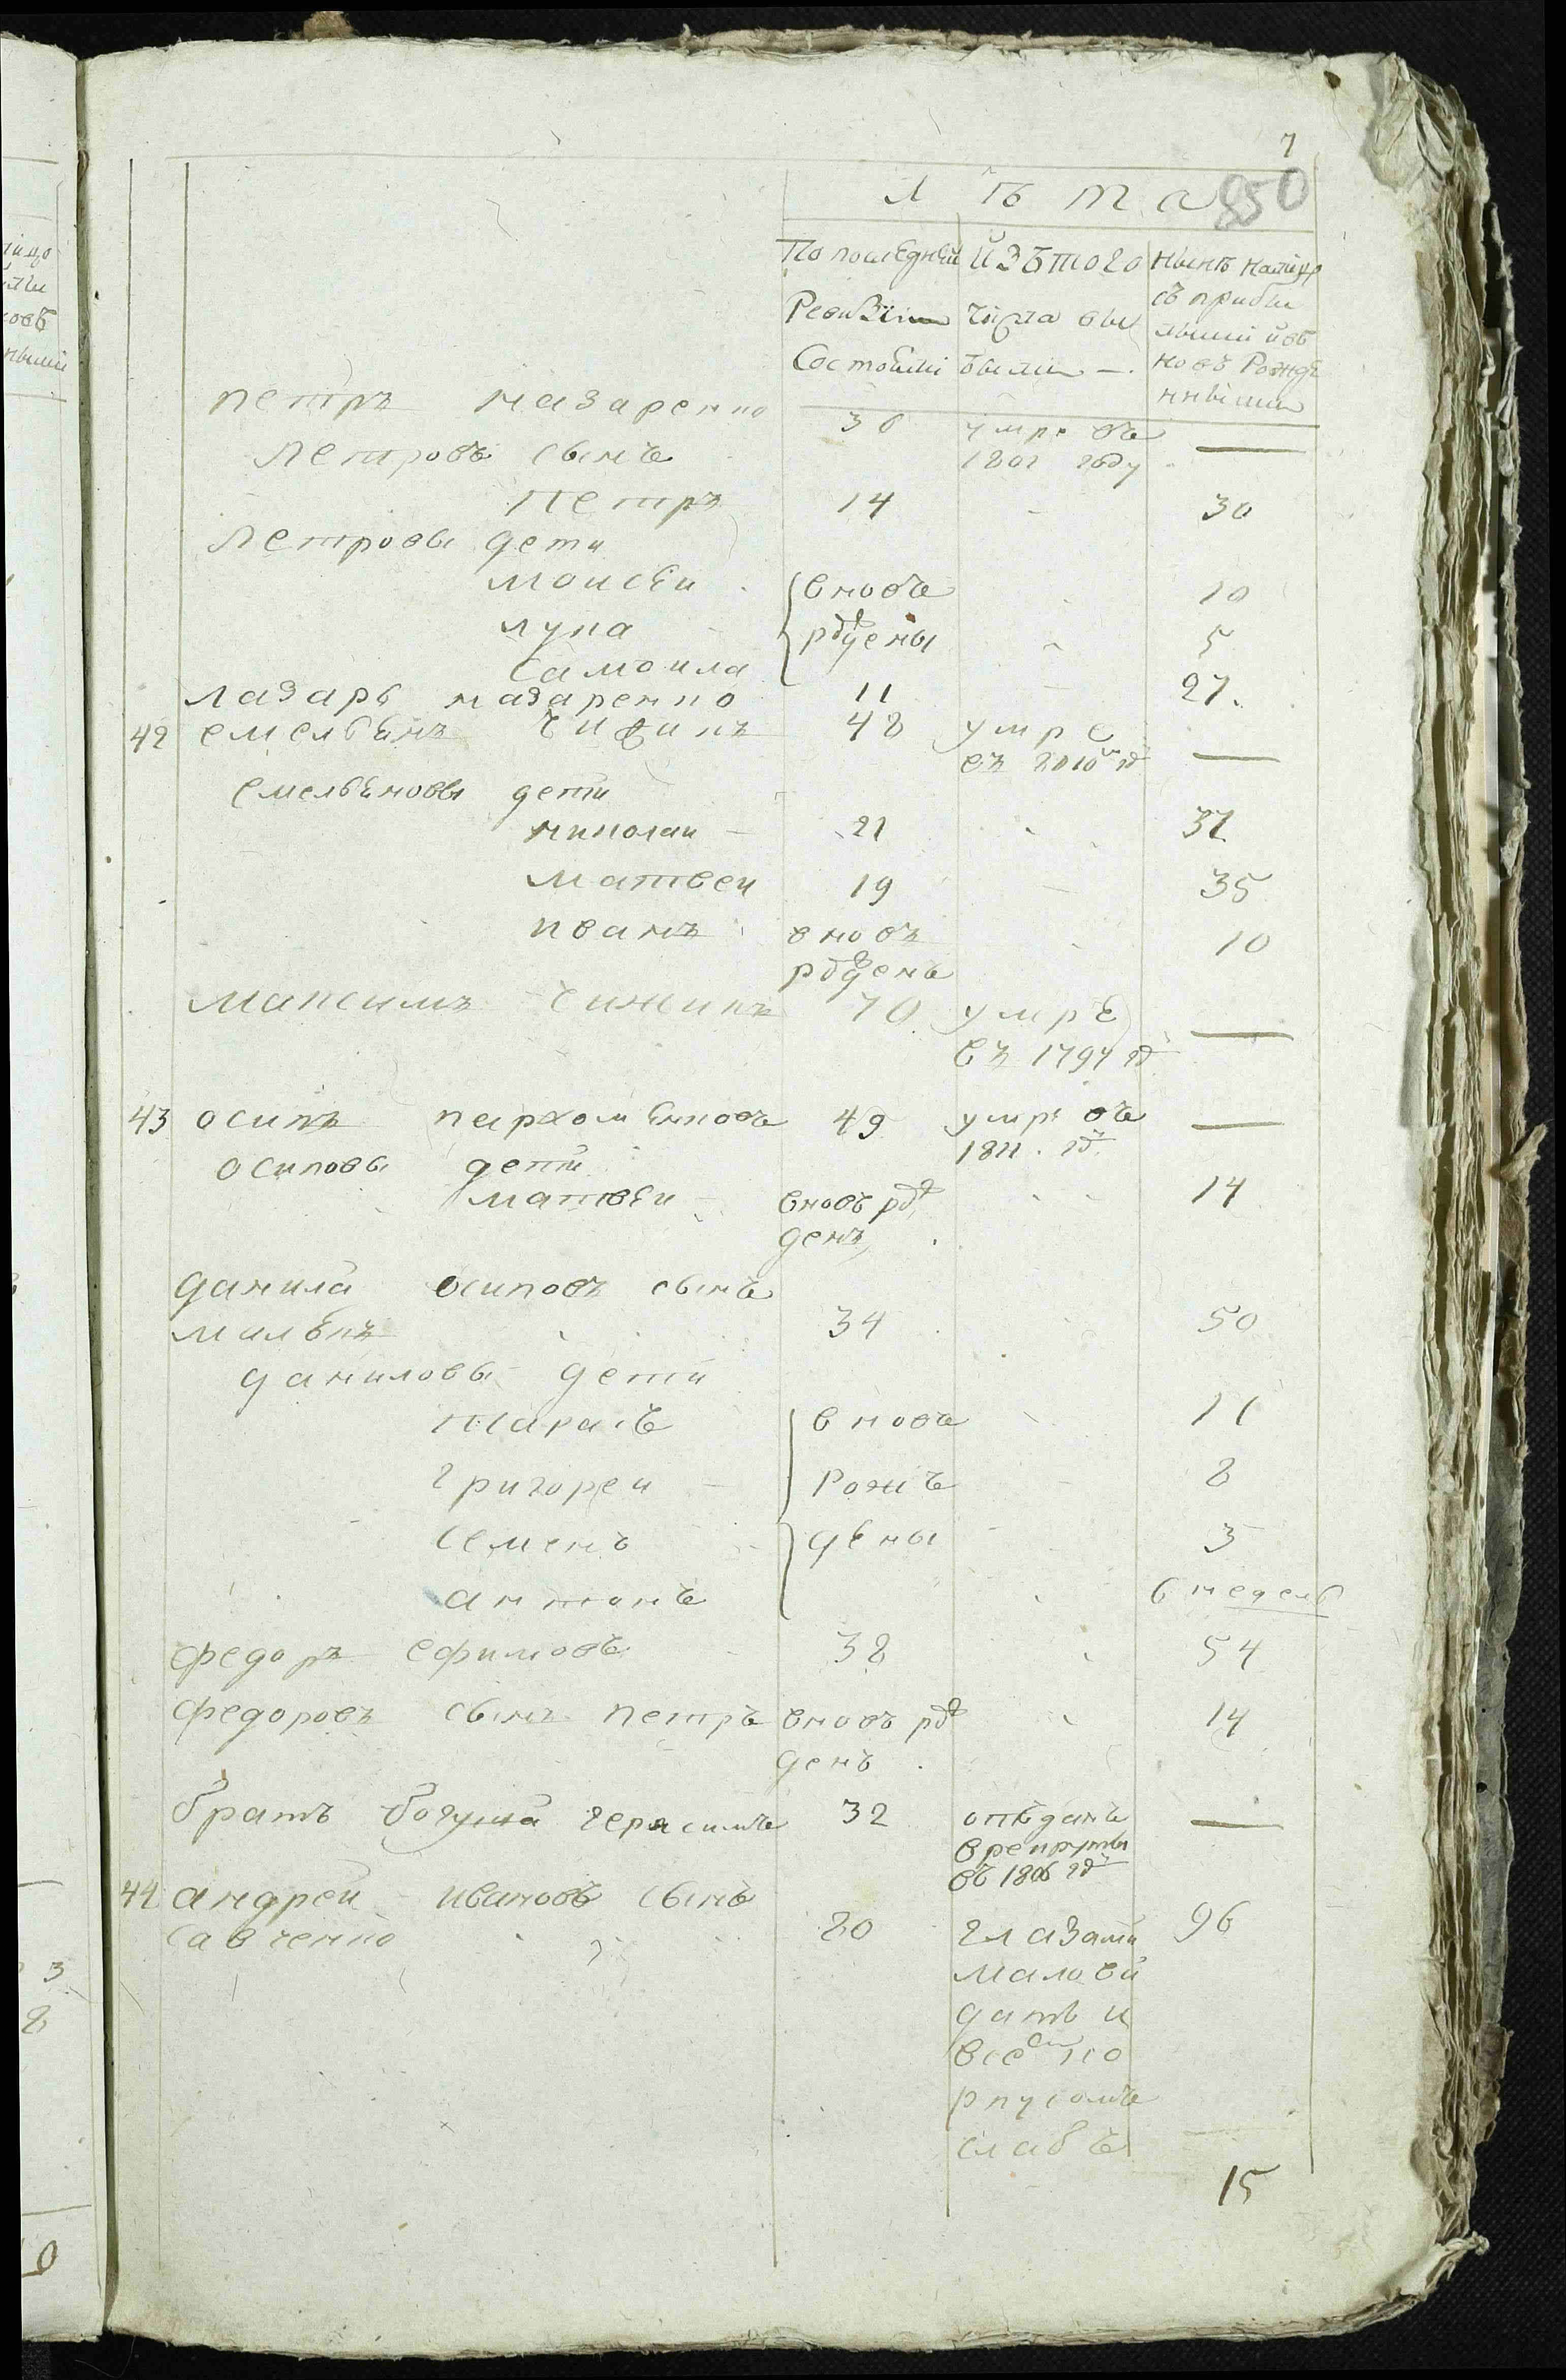 7
850
Лѣта
По последней Ревизiи Состояли
изътого числа выбыли
нынѣ налицо съ прибылыми и вновъ Рожденными
петръ назаренко 30 умре въ 1801 году —
петровъ сынъ
петръ 14 30
петровы дети
моисеи вновъ 10
лука рождены 5
самоила
лазаръ назаренко 11 27.
42 емельянъ чижикъ 48 умре въ 1810м год —
емельяновы дети
николаи 21 37
матвеи 19 35
иванъ вновъ рожденъ 10
максимъ чижикъ 70 умре въ 1797 год —
43 осипъ пархоменковъ 49 умре въ 1811. год —
осиповы дети
матвеи вновъ рожденъ 14
данила осиповъ сынъ
34 50
даниловы дети
тарасъ вновъ 11
григореи Рожъ 8
семенъ дены 3
антонъ 6 неделъ
федоръ ефимовъ 38 54
федоровъ сынъ петръ вновъ рожденъ 14
братъ герасимъ 32 отъданъ в рекруты въ 1806 год —
44 андреи ивановъ сынъ
савченко 80 глазами 96
мало ви
дитъ и
всем ко
рпусомъ
слабъ
15